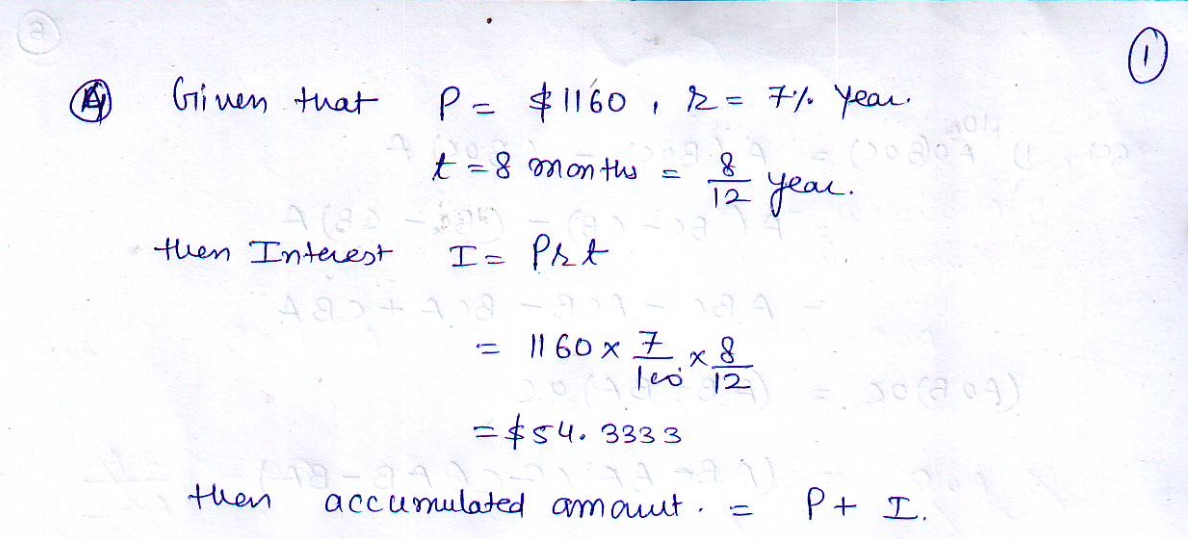 ①
④ Given that P = $1160, r = 7% Year.
t = 8 months = 8/12 year.
then Interest I = Prt
= 1160 x 7/100 x 8/12
= $54.3333
then accumulated amount. = P + I.